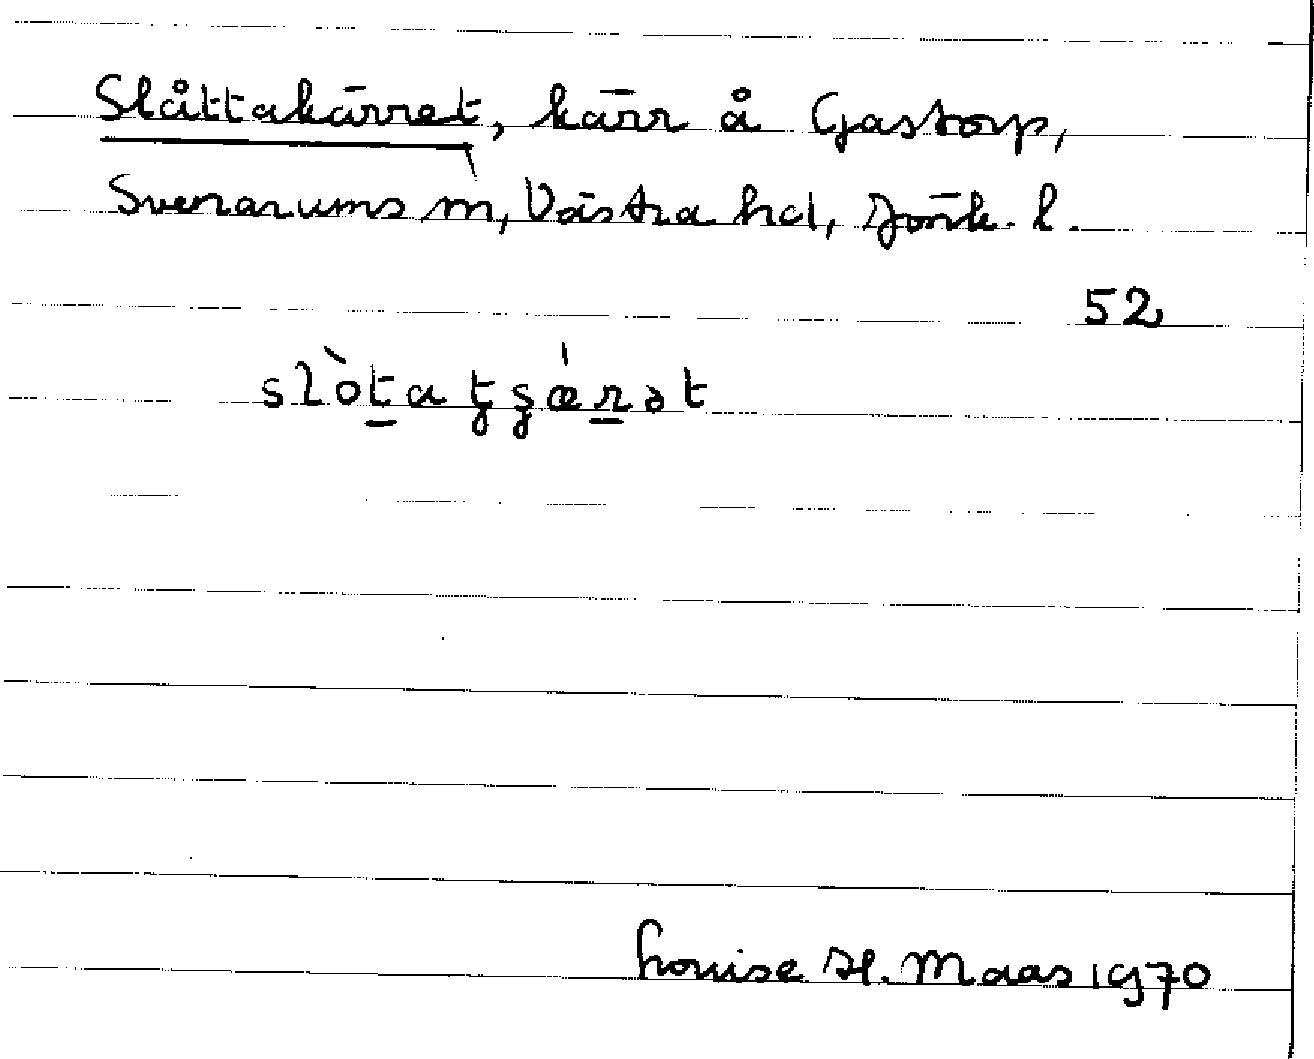 Slåttakärret, kärr å Gastorp,
Svenarums sn, Västra hd, Jönk. l.
52
slòtatʂǽrət
Louise H. Maas 1970